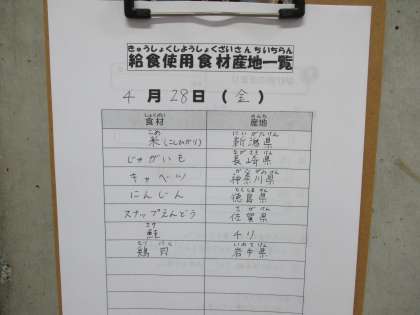 きゅうしょくしようしょくざいさんちいちらん
給食使用食材産地一覧
4月28日(金)
しょくざい さんち
食材 産地
こめ にいがたけん
米(こしひかり) 新潟県
ながさきけん
じゃがいも 長崎県
かながわけん
キャベツ 神奈川県
とくしまけん
にんじん 徳島県
さがけん
スナップえんどう 佐賀県
さけ
鮭 チリ
とりにく いわてけん
鶏肉 岩手県